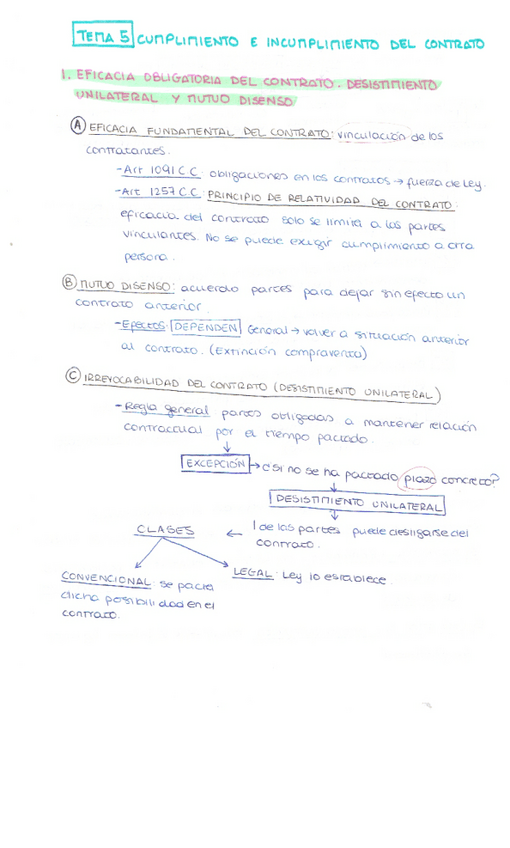 TEMA 5 CUMPLIMIENTO E INCUMPLIMIENTO DEL CONTRATO
1. EFICACIA OBLIGATORIA DEL CONTRATO. DESISTIMIENTO
UNILATERAL Y MUTUO DISENSO
A EFICACIA FUNDAMENTAL DEL CONTRATO: vinculación de los
contratantes.
- Art 1091 C.C. obligaciones en los contratos → fuerza de Ley.
- Art. 1257 C.C: PRINCIPIO DE RELATIVIDAD DEL CONTRATO:
eficacia del contrato solo se limita a las partes
vinculantes. No se puede exigir cumplimiento a otra
persona.
B MUTUO DISENSO: acuerdo partes para dejar sin efecto un
contrato anterior.
- Efectos: DEPENDEN General → volver a situación anterior
al contrato. (Extinción compraventa)
C IRREVOCABILIDAD DEL CONTRATO (DESISTIMIENTO UNILATERAL)
- Regla general partes obligadas a mantener relación
contractual por el tiempo pactado.
EXCEPCIÓN → ¿si no se ha pactado plazo concreto?
DESISTIMIENTO UNILATERAL
CLASES ← 1 de las partes puede desligarse del
contrato.
CONVENCIONAL: se pacta
dicha posibilidad en el
contrato.
LEGAL: Ley lo establece.